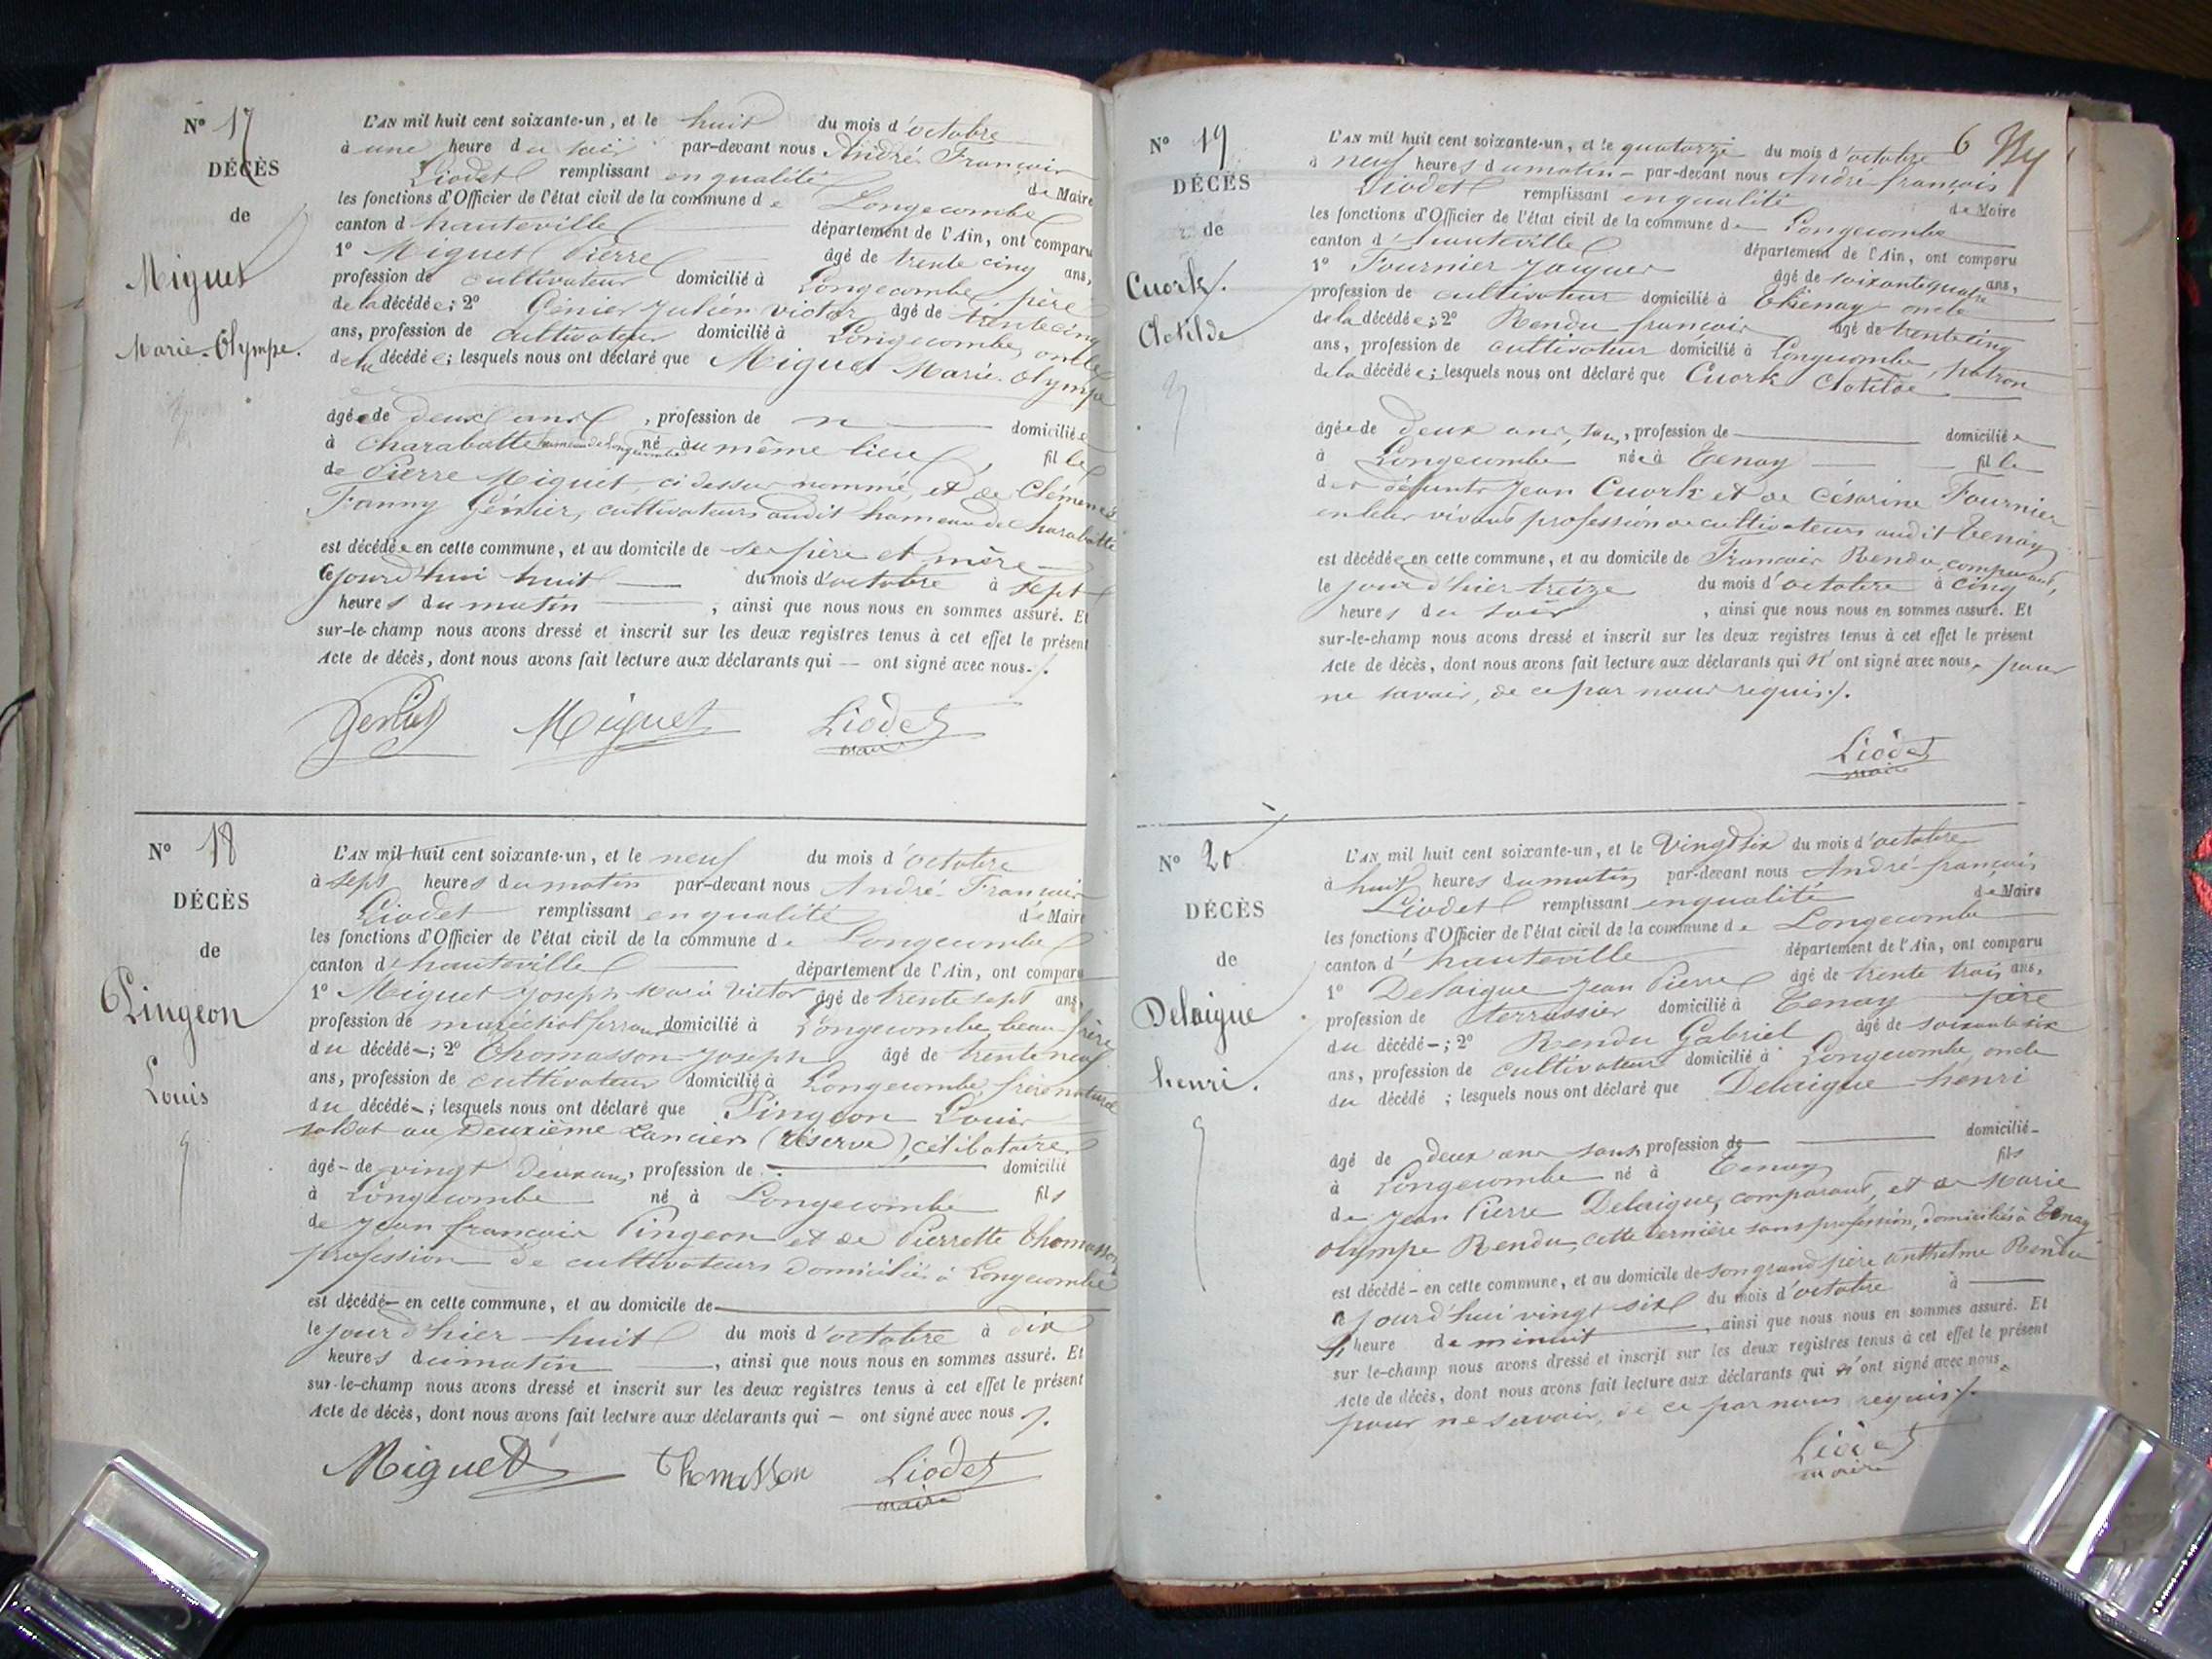 N° 17
DÉCÈS
de
Miguet
Marie-Olympe.
L'AN mil huit cent soixante-un, et le huit du mois d'octobre
à une heure du soir par-devant nous André François
Liodet remplissant en qualité de Maire
les fonctions d'Officier de l'état civil de la commune de Longecombe
canton d'hauteville département de l'Ain, ont comparu
1° Miguet Pierre âgé de trente cinq ans,
profession de cultivateur domicilié à Longecombe, père
de la décédée; 2° Génier Julien Victor âgé de trente cinq
ans, profession de cultivateur domicilié à Longecombe, oncle
de la décédée; lesquels nous ont déclaré que Miguet Marie-Olympe
âgée de deux ans, profession de domiciliée
à Charabotte hameau de Longecombe né au même lieu, fille
de Pierre Miguet, ci dessus nommé, et de Clémence
Fanny Génier, cultivateurs audit hameau de Charabotte
est décédée en cette commune, et au domicile de ses père et mère
cejourd'hui huit du mois d'octobre à sept
heures du matin, ainsi que nous nous en sommes assuré. Et
sur-le-champ nous avons dressé et inscrit sur les deux registres tenus à cet effet le présent
Acte de décès, dont nous avons fait lecture aux déclarants qui — ont signé avec nous./.
Miguet Liodet
maire
N° 18
DÉCÈS
de
Pingeon
Louis
L'AN mil huit cent soixante-un, et le neuf du mois d'octobre
à sept heures du matin par-devant nous André-François
Liodet remplissant en qualité de Maire
les fonctions d'Officier de l'état civil de la commune de Longecombe
canton d'hauteville département de l'Ain, ont comparu
1° Miguet Joseph Marie Victor âgé de trente sept ans,
profession de maréchal ferrant domicilié à Longecombe, beau-frère
du décédé-; 2° Thomasson Joseph âgé de trente neuf
ans, profession de cultivateur domicilié à Longecombe, frère naturel
du décédé-; lesquels nous ont déclaré que Pingeon Louis
soldat au Deuxième Lanciers (réserve), célibataire
âgé-de vingt deux ans, profession de domicilié
à Longecombe né à Longecombe fils
de Jean François Pingeon et de Pierrette Thomasson
profession de cultivateurs domiciliés à Longecombe
est décédé- en cette commune, et au domicile de
le jour d'hier huit du mois d'octobre à dix
heures du matin, ainsi que nous nous en sommes assuré. Et
sur-le-champ nous avons dressé et inscrit sur les deux registres tenus à cet effet le présent
Acte de décès, dont nous avons fait lecture aux déclarants qui — ont signé avec nous./.
Miguet Thomasson Liodet
maire
6
N° 19
DÉCÈS
de
Cuork/.
Clotilde
L'AN mil huit cent soixante-un, et le quatorze du mois d'octobre
à neuf heures du matin - par-devant nous André-françois
Liodet remplissant en qualité de Maire
les fonctions d'Officier de l'état civil de la commune de Longecombe
canton d'hauteville département de l'Ain, ont comparu
1° Fournier Jacques âgé de soixante quatre ans,
profession de cultivateur domicilié à Thenay oncle
de la décédée; 2° Rendu françois âgé de trente cinq
ans, profession de cultivateur domicilié à Longecombe, patron
de la décédée; lesquels nous ont déclaré que Cuork Clotilde
âgée de deux ans, sans, profession de domiciliée
à Longecombe née à Tenay fille
des défunts Jean Cuork et de Césarine Fournier
en leur vivant profession de cultivateurs audit Tenay
est décédée en cette commune, et au domicile de François Rendu, comparant,
le jour d'hier treize du mois d'octobre à cinq
heures du soir, ainsi que nous nous en sommes assuré. Et
sur-le-champ nous avons dressé et inscrit sur les deux registres tenus à cet effet le présent
Acte de décès, dont nous avons fait lecture aux déclarants qui n'ont signé avec nous, pour
ne savoir, de ce par nous requis./.
Liodet
maire
N° 20
DÉCÈS
de
Delaigue
henri.
L'AN mil huit cent soixante-un, et le vingt six du mois d'octobre
à huit heures du matin par-devant nous André-françois
Liodet remplissant en qualité de Maire
les fonctions d'Officier de l'état civil de la commune de Longecombe
canton d'hauteville département de l'Ain, ont comparu
1° Delaigue Jean Pierre âgé de trente trois ans,
profession de terrassier domicilié à Tenay père
du décédé-; 2° Rendu Gabriel âgé de soixante six
ans, profession de cultivateur domicilié à Longecombe, oncle
du décédé; lesquels nous ont déclaré que Delaigue henri
âgé de deux ans sans profession de domicilié-
à Longecombe né à Tenay fils
de Jean Pierre Delaigue, comparant, et de Marie
Olympe Rendu, cette dernière sans profession, domiciliés à Tenay
est décédé- en cette commune, et au domicile de son grand père anthelme Rendu
cejourd'hui vingt six du mois d'octobre à
heure de minuit, ainsi que nous nous en sommes assuré. Et
sur le-champ nous avons dressé et inscrit sur les deux registres tenus à cet effet le présent
Acte de décès, dont nous avons fait lecture aux déclarants qui n'ont signé avec nous,
pour ne savoir, de ce par nous requis./.
Liodet
maire